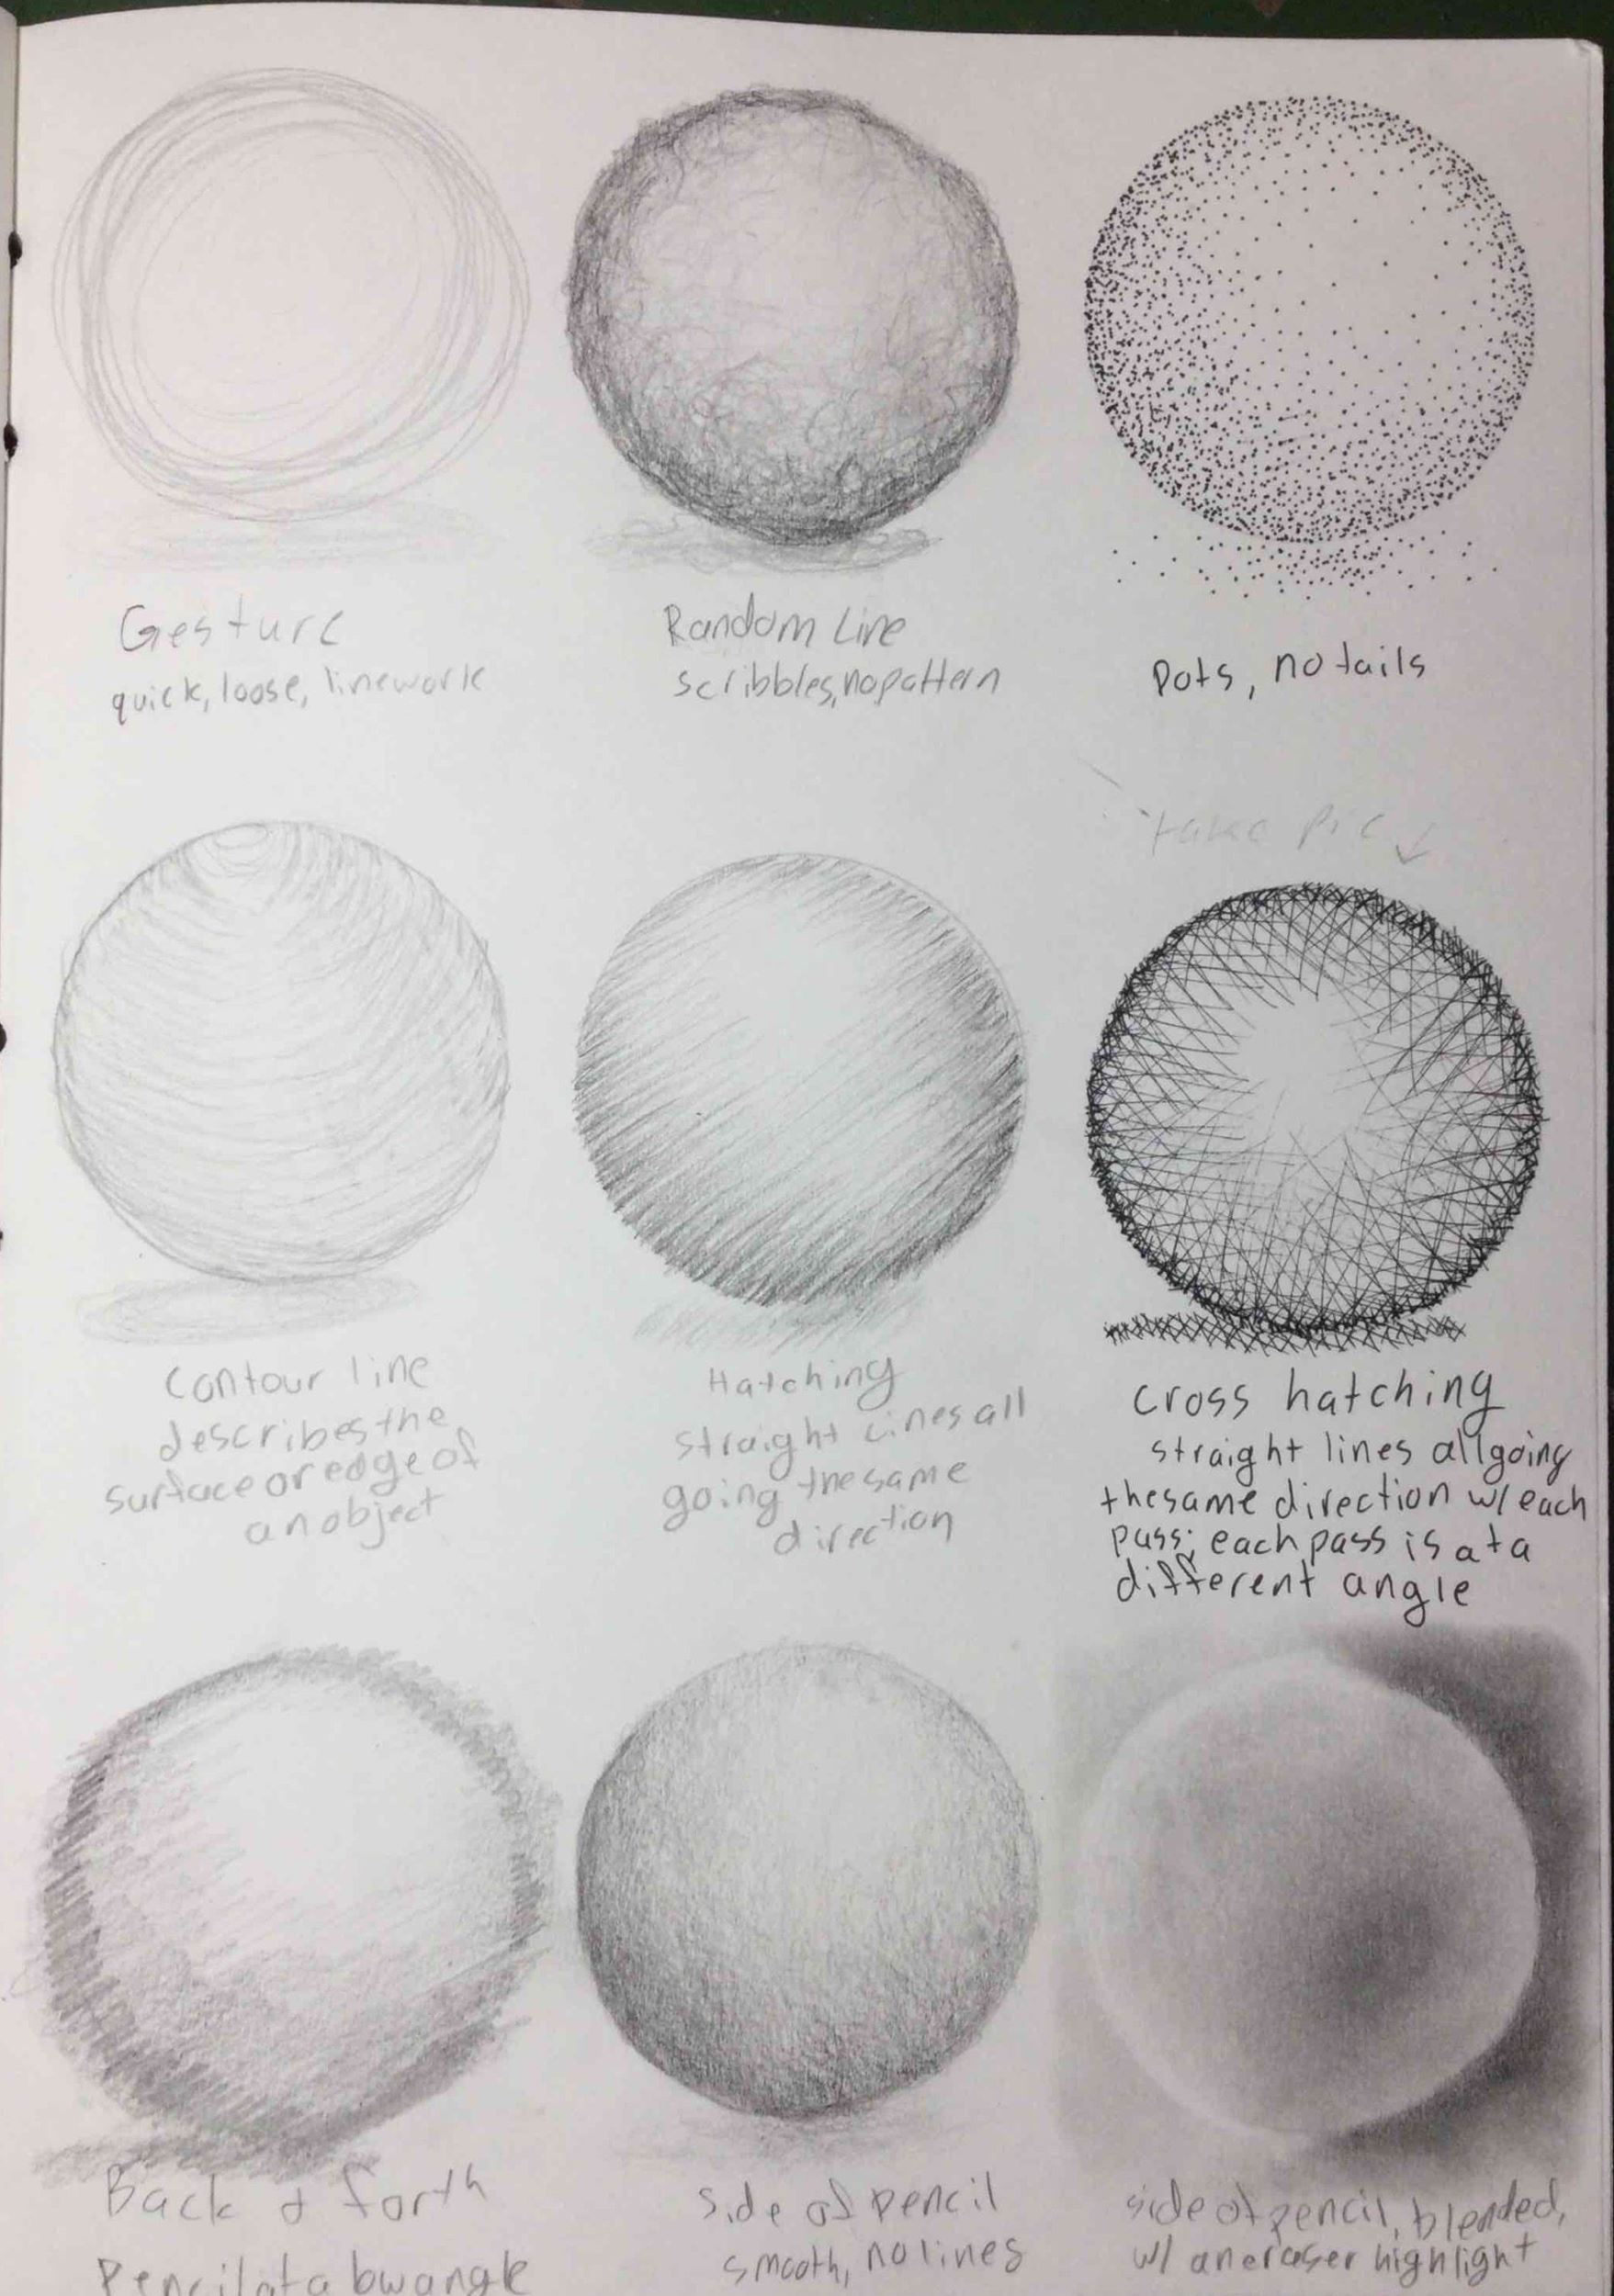 Gesture
quick, loose, linework
Random Line
scribbles, no pattern
Dots, no tails
take pic ↓
Contour line
describes the
surface or edge of
an object
Hatching
straight Lines all
going the same
direction
cross hatching
straight lines all going
the same direction w/ each
pass; each pass is at a
different angle
Back & forth
Pencil at a low angle
side of pencil
smooth, no lines
side of pencil, blended,
w/ an eraser highlight